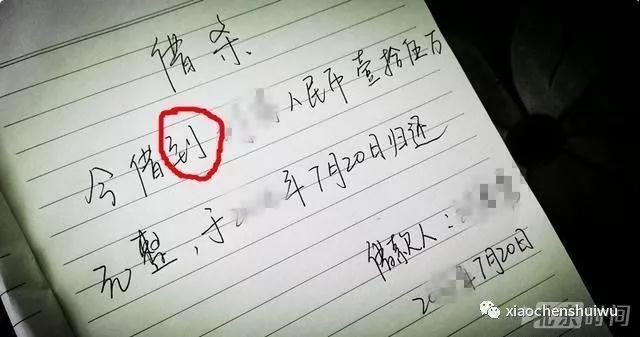 借条
今借到 人民币壹拾伍万
元整,于2 年7月20日归还
借款人:
20 年7月20日
xiaochenshuiwu
北京时间